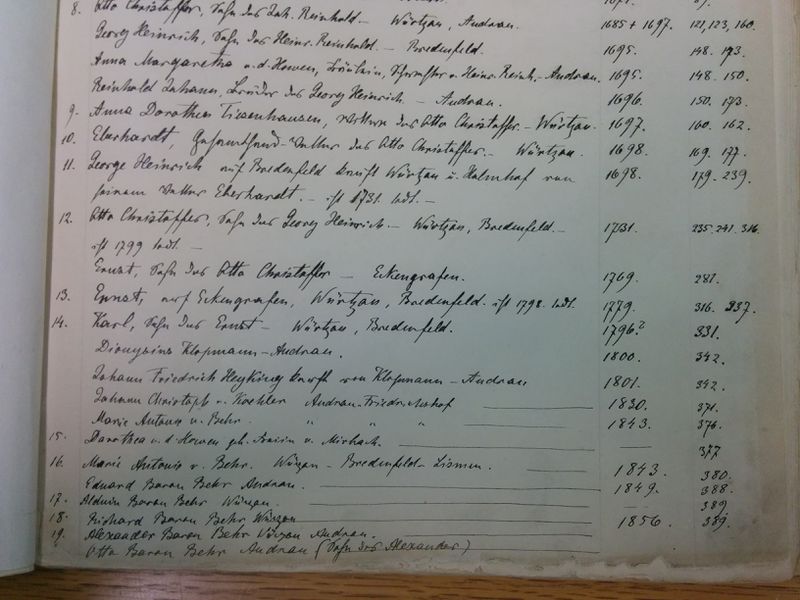 8. Otto Christoffer, Sohn des Joh. Reinhold – Würtzau, Audrau. 1685 + 1697. 121, 123, 160.
Georg Heinrich, Sohn des Heinr. Reinhold. – Bredenfeld. 1695. 148. 173.
Anna Margaretha v. d. Howen, Fräulein, Schwester v. Heinr. Reinh. – Audrau. 1695. 148. 150.
Reinhold Johann, Bruder des Georg Heinrich – Audrau. 1696. 150. 173.
9. Anna Dorothea Tiesenhausen, Wittwe des Otto Christoffer – Würtzau. 1697. 160. 162.
10. Eberhardt, des Otto Christoffer. – Würtzau. 1698. 169. 177.
11. George Heinrich auf Bredenfeld kauft Würtzau u. Kalenhof von 1698. 179. 239.
seinem Vetter Eberhardt. – ist 1731 todt. –
12. Otto Christoffer, Sohn des Georg Heinrich – Würtzau, Bredenfeld. – 1731. 235. 241. 316.
ist 1799 todt. –
Ernst, Sohn des Otto Christoffer – Eckengrafen. 1769. 281.
13. Ernst, auf Eckengrafen, Würtzau, Bredenfeld. ist 1798 todt. 1779. 316. 337.
14. Karl, Sohn des Ernst – Würtzau, Bredenfeld. 1796? 331.
Dionysius Klopmann – Audrau. 1800. 342.
Johann Friedrich Heyking kauft von Klopmann – Audrau 1801. 342.
Johann Christoph v. Koehler Audrau-Friedrichshof 1830. 371.
Marie Antonie v. Behr. " " " 1843. 376.
15. Dorothea v. d. Howen geb. Freiin v. Mirbach. — 377
16. Marie Antonie v. Behr. Würzau – Bredenfeld – Lismen. 1843. 380.
Eduard Baron Behr Audrau. 1849. 388.
17. Baron Behr Würzau. — 389
18. Richard Baron Behr Würzau 1856. 389.
19. Alexander Baron Behr Würzau Audrau.
Otto Baron Behr Audrau (Sohn des Alexander)